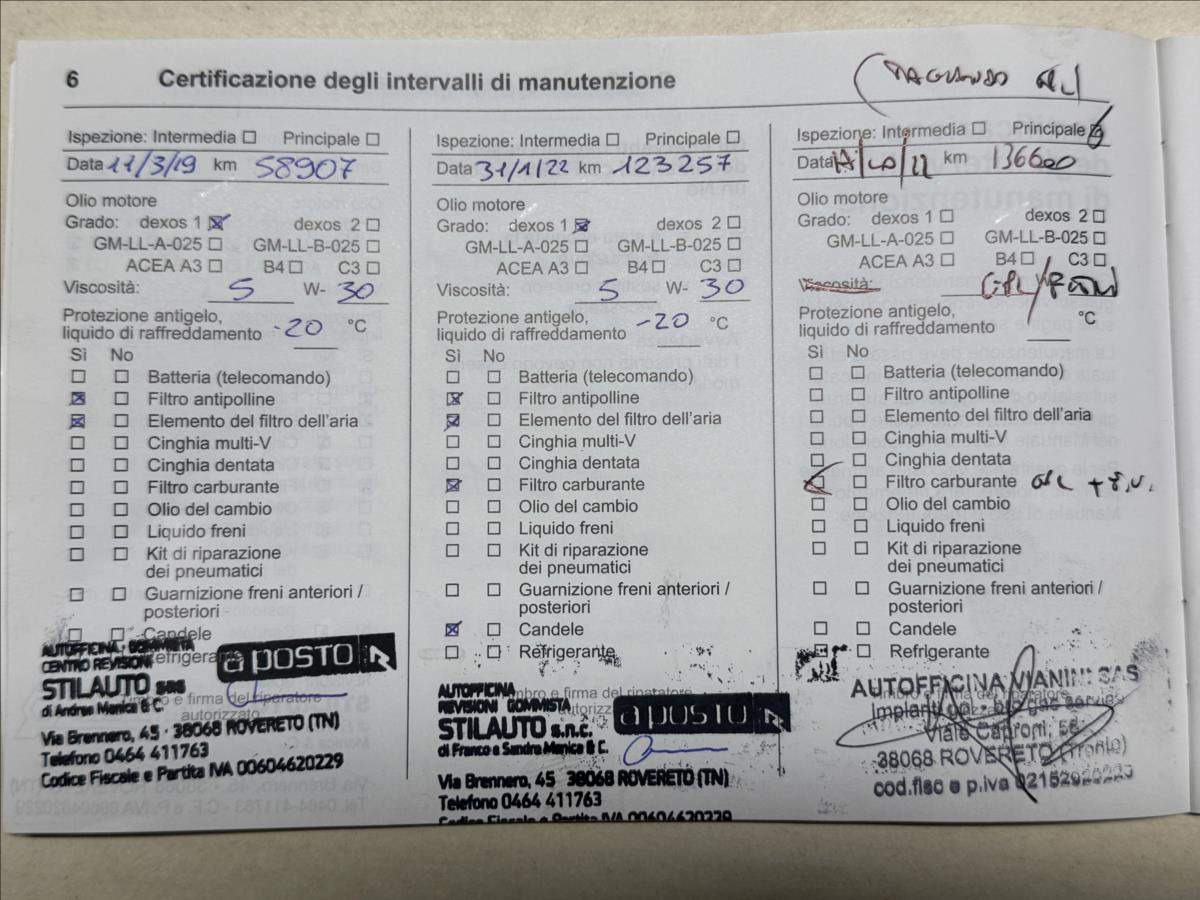 6 Certificazione degli intervalli di manutenzione
Ispezione: Intermedia ☐ Principale ☐
Data 11/3/19 km 58907
Olio motore
Grado: dexos 1 ☒ dexos 2 ☐
GM-LL-A-025 ☐ GM-LL-B-025 ☐
ACEA A3 ☐ B4 ☐ C3 ☐
Viscosità: 5 W- 30
Protezione antigelo,
liquido di raffreddamento -20 °C
Sì No
☐ ☐ Batteria (telecomando)
☒ ☐ Filtro antipolline
☒ ☐ Elemento del filtro dell'aria
☐ ☐ Cinghia multi-V
☐ ☐ Cinghia dentata
☐ ☐ Filtro carburante
☐ ☐ Olio del cambio
☐ ☐ Liquido freni
☐ ☐ Kit di riparazione
dei pneumatici
☐ ☐ Guarnizione freni anteriori /
posteriori
☐ ☐ Candele
Refrigerante
e firma del riparatore
autorizzato
AUTOFFICINA - GOMMISTA
CENTRO REVISIONI
a posto
STILAUTO sas
di Andrea Manica & C.
Via Brennero, 45 - 38068 ROVERETO (TN)
Telefono 0464 411763
Codice Fiscale e Partita IVA 00604620229
Ispezione: Intermedia ☐ Principale ☐
Data 31/1/22 km 123257
Olio motore
Grado: dexos 1 ☒ dexos 2 ☐
GM-LL-A-025 ☐ GM-LL-B-025 ☐
ACEA A3 ☐ B4 ☐ C3 ☐
Viscosità: 5 W- 30
Protezione antigelo,
liquido di raffreddamento -20 °C
Sì No
☐ ☐ Batteria (telecomando)
☒ ☐ Filtro antipolline
☒ ☐ Elemento del filtro dell'aria
☐ ☐ Cinghia multi-V
☐ ☐ Cinghia dentata
☒ ☐ Filtro carburante
☐ ☐ Olio del cambio
☐ ☐ Liquido freni
☐ ☐ Kit di riparazione
dei pneumatici
☐ ☐ Guarnizione freni anteriori /
posteriori
☒ ☐ Candele
☐ ☐ Refrigerante
e firma del riparatore
AUTOFFICINA
REVISIONI GOMMISTA
a posto
STILAUTO s.n.c.
di Franco e Sandra Manica & C.
Via Brennero, 45 38068 ROVERETO (TN)
Telefono 0464 411763
Codice Fiscale e Partita IVA 00604620229
Ispezione: Intermedia ☐ Principale ☒
Data km 136600
Olio motore
Grado: dexos 1 ☐ dexos 2 ☐
GM-LL-A-025 ☐ GM-LL-B-025 ☐
ACEA A3 ☐ B4 ☐ C3 ☐
Viscosità:
Protezione antigelo,
liquido di raffreddamento °C
Sì No
☐ ☐ Batteria (telecomando)
☐ ☐ Filtro antipolline
☐ ☐ Elemento del filtro dell'aria
☐ ☐ Cinghia multi-V
☐ ☐ Cinghia dentata
☒ ☐ Filtro carburante
☐ ☐ Olio del cambio
☐ ☐ Liquido freni
☐ ☐ Kit di riparazione
dei pneumatici
☐ ☐ Guarnizione freni anteriori /
posteriori
☐ ☐ Candele
☐ Refrigerante
AUTOFFICINA VIANINI SAS
Viale Caproni, 56
38068 ROVERETO (Trento)
cod.fisc e p.iva